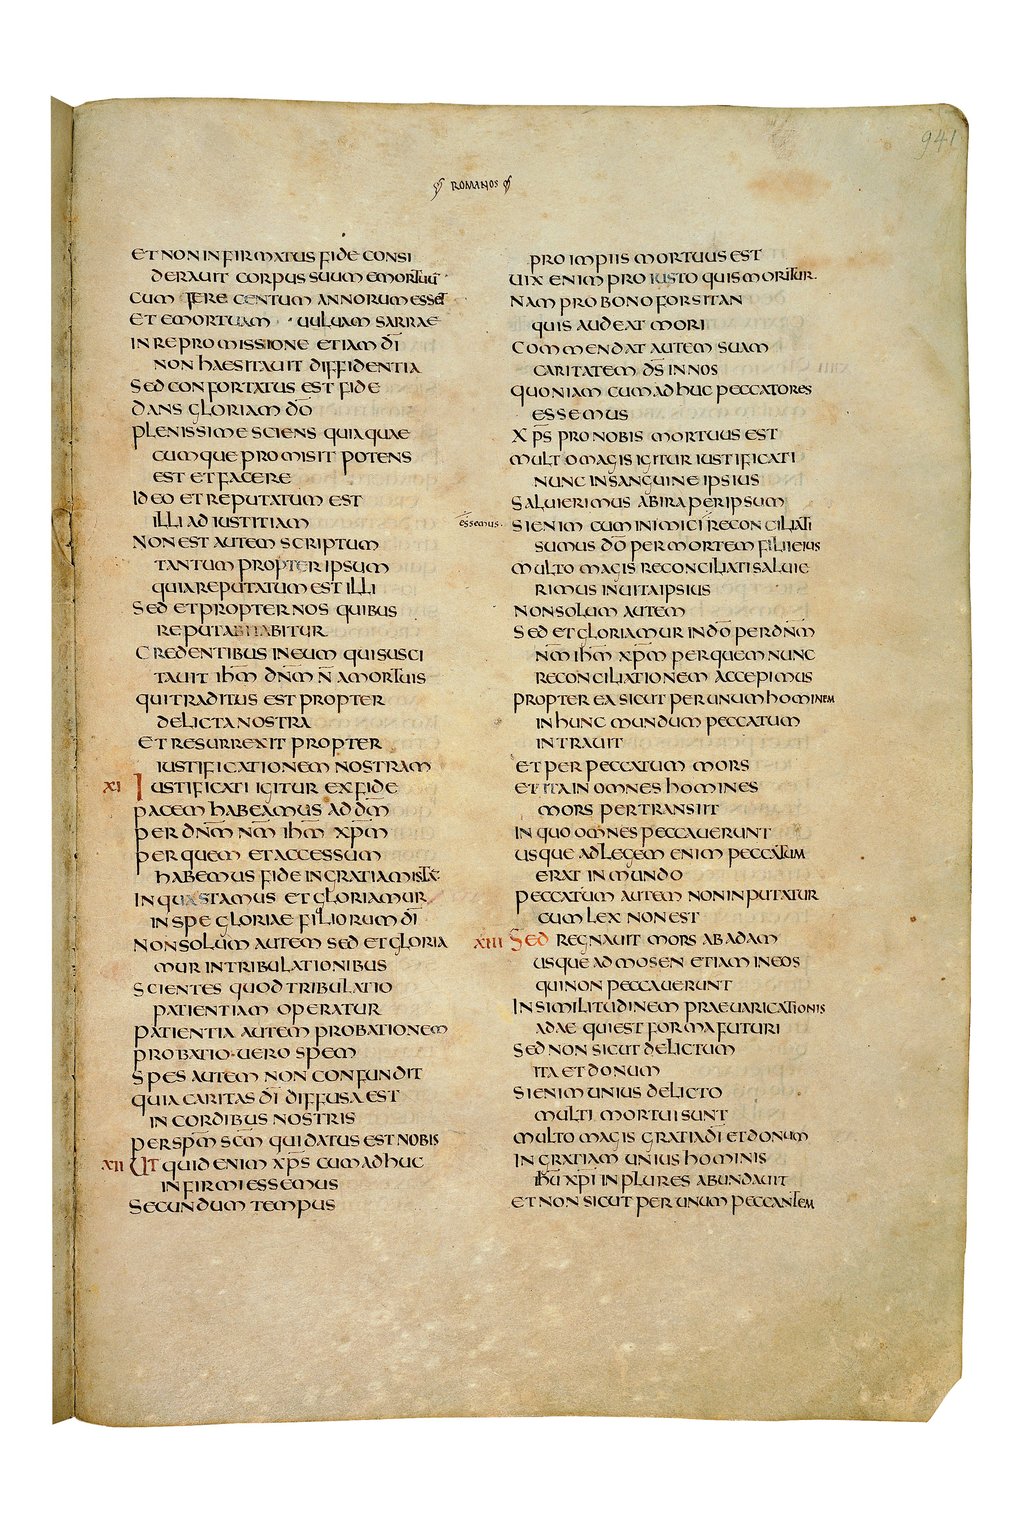 941
ROMANOS
ET NON INFIRMATUS FIDE CONSI
DERAUIT CORPUS SUUM EMORTUŪ
CUM FERE CENTUM ANNORUM ESSET
ET EMORTUAM UULUAM SARRAE
IN REPROMISSIONE ETIAM D̄I
NON HAESITAUIT DIFFIDENTIA
SED CONFORTATUS EST FIDE
DANS GLORIAM D̄O
PLENISSIME SCIENS QUIA QUAE
CUMQUE PROMISIT POTENS
EST ET FACERE
IDEO ET REPUTATUM EST
ILLI AD IUSTITIAM
NON EST AUTEM SCRIPTUM
TANTUM PROPTER IPSUM
QUIA REPUTATUM EST ILLI
SED ET PROPTER NOS QUIBUS
REPUTABITUR
CREDENTIBUS IN EUM QUI SUSCI
TAUIT IH̄M DN̄M N̄ A MORTUIS
QUI TRADITUS EST PROPTER
DELICTA NOSTRA
ET RESURREXIT PROPTER
IUSTIFICATIONEM NOSTRAM
XI IUSTIFICATI IGITUR EX FIDE
PACEM HABEAMUS AD D̄M
PER DN̄M N̄M IH̄M XP̄M
PER QUEM ET ACCESSUM
HABEMUS FIDE IN GRATIAM ISTĀ
IN QUA STAMUS ET GLORIAMUR
IN SPE GLORIAE FILIORUM D̄I
NON SOLUM AUTEM SED ET GLORIA
MUR IN TRIBULATIONIBUS
SCIENTES QUOD TRIBULATIO
PATIENTIAM OPERATUR
PATIENTIA AUTEM PROBATIONEM
PROBATIO UERO SPEM
SPES AUTEM NON CONFUNDIT
QUIA CARITAS D̄I DIFFUSA EST
IN CORDIBUS NOSTRIS
PER SP̄M SC̄M QUI DATUS EST NOBIS
XII UT QUID ENIM XP̄S CUM ADHUC
INFIRMI ESSEMUS
SECUNDUM TEMPUS
PRO IMPIIS MORTUUS EST
UIX ENIM PRO IUSTO QUIS MORITUR
NAM PRO BONO FORSITAN
QUIS AUDEAT MORI
COMMENDAT AUTEM SUAM
CARITATEM D̄S IN NOS
QUONIAM CUM ADHUC PECCATORES
ESSEMUS
XP̄S PRO NOBIS MORTUUS EST
MULTO MAGIS IGITUR IUSTIFICATI
NUNC IN SANGUINE IPSIUS
SALUI ERIMUS AB IRA PER IPSUM
essemus
SI ENIM CUM INIMICI RECONCILIATI
SUMUS D̄O PER MORTEM FILII EIUS
MULTO MAGIS RECONCILIATI SALUI E
RIMUS IN UITA IPSIUS
NON SOLUM AUTEM
SED ET GLORIAMUR IN D̄O PER DN̄M
N̄M IH̄M XP̄M PER QUEM NUNC
RECONCILIATIONEM ACCEPIMUS
PROPTEREA SICUT PER UNUM HOMINEM
IN HUNC MUNDUM PECCATUM
INTRAUIT
ET PER PECCATUM MORS
ET ITA IN OMNES HOMINES
MORS PERTRANSIIT
IN QUO OMNES PECCAUERUNT
USQUE AD LEGEM ENIM PECCATUM
ERAT IN MUNDO
PECCATUM AUTEM NON INPUTATUR
CUM LEX NON EST
XIII SED REGNAUIT MORS AB ADAM
USQUE AD MOSEN ETIAM IN EOS
QUI NON PECCAUERUNT
IN SIMILITUDINEM PRAEUARICATIONIS
ADAE QUI EST FORMA FUTURI
SED NON SICUT DELICTUM
ITA ET DONUM
SI ENIM UNIUS DELICTO
MULTI MORTUI SUNT
MULTO MAGIS GRATIA D̄I ET DONUM
IN GRATIAM UNIUS HOMINIS
IH̄U XP̄I IN PLURES ABUNDAUIT
ET NON SICUT PER UNUM PECCANTEM